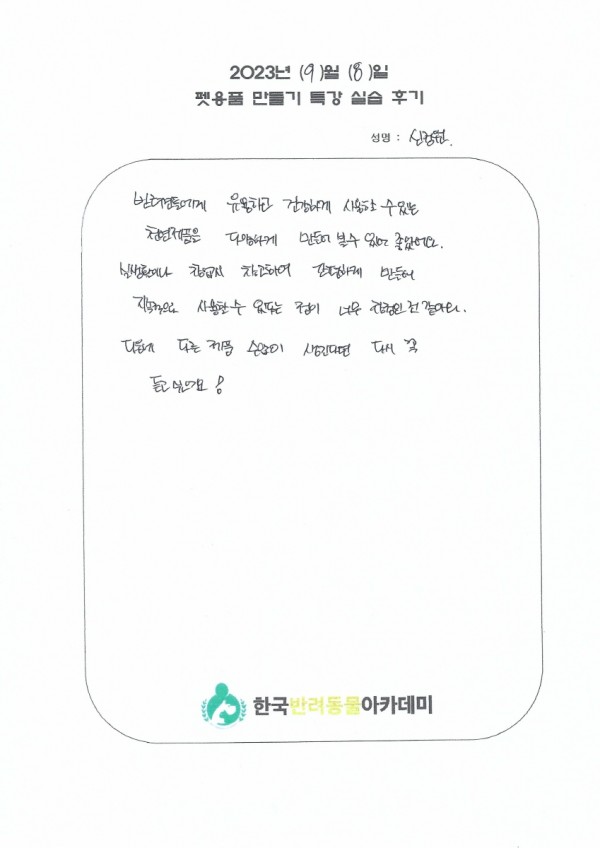 2023년 (9)월 (8)일
펫용품 만들기 특강 실습 후기
성명 :
반려견들에게 유용하고 건강하게 사용할 수 있는
천연제품을 다양하게 만들어 볼 수 있어 좋았어요.
일상생활이나 창업시 참고하여 간단하게 만들어
지속적으로 사용할 수 있다는 점이 너무 장점인 것 같아요.
다음에 다른 제품 수업이 생긴다면 다시 꼭
듣고 싶은걸요 !
한국반려동물아카데미